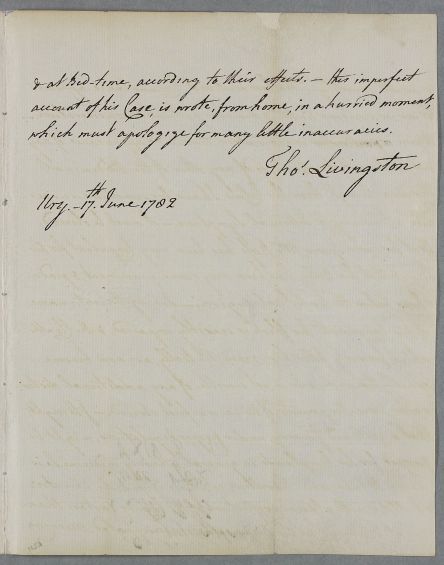 & at Bed-time, according to their effects. — this imperfect
account of his Case, is wrote, from home, in a hurried moment,
which must apologize for many little inaccuracies.
Thos. Livingston
Ury. 17th. June 1782